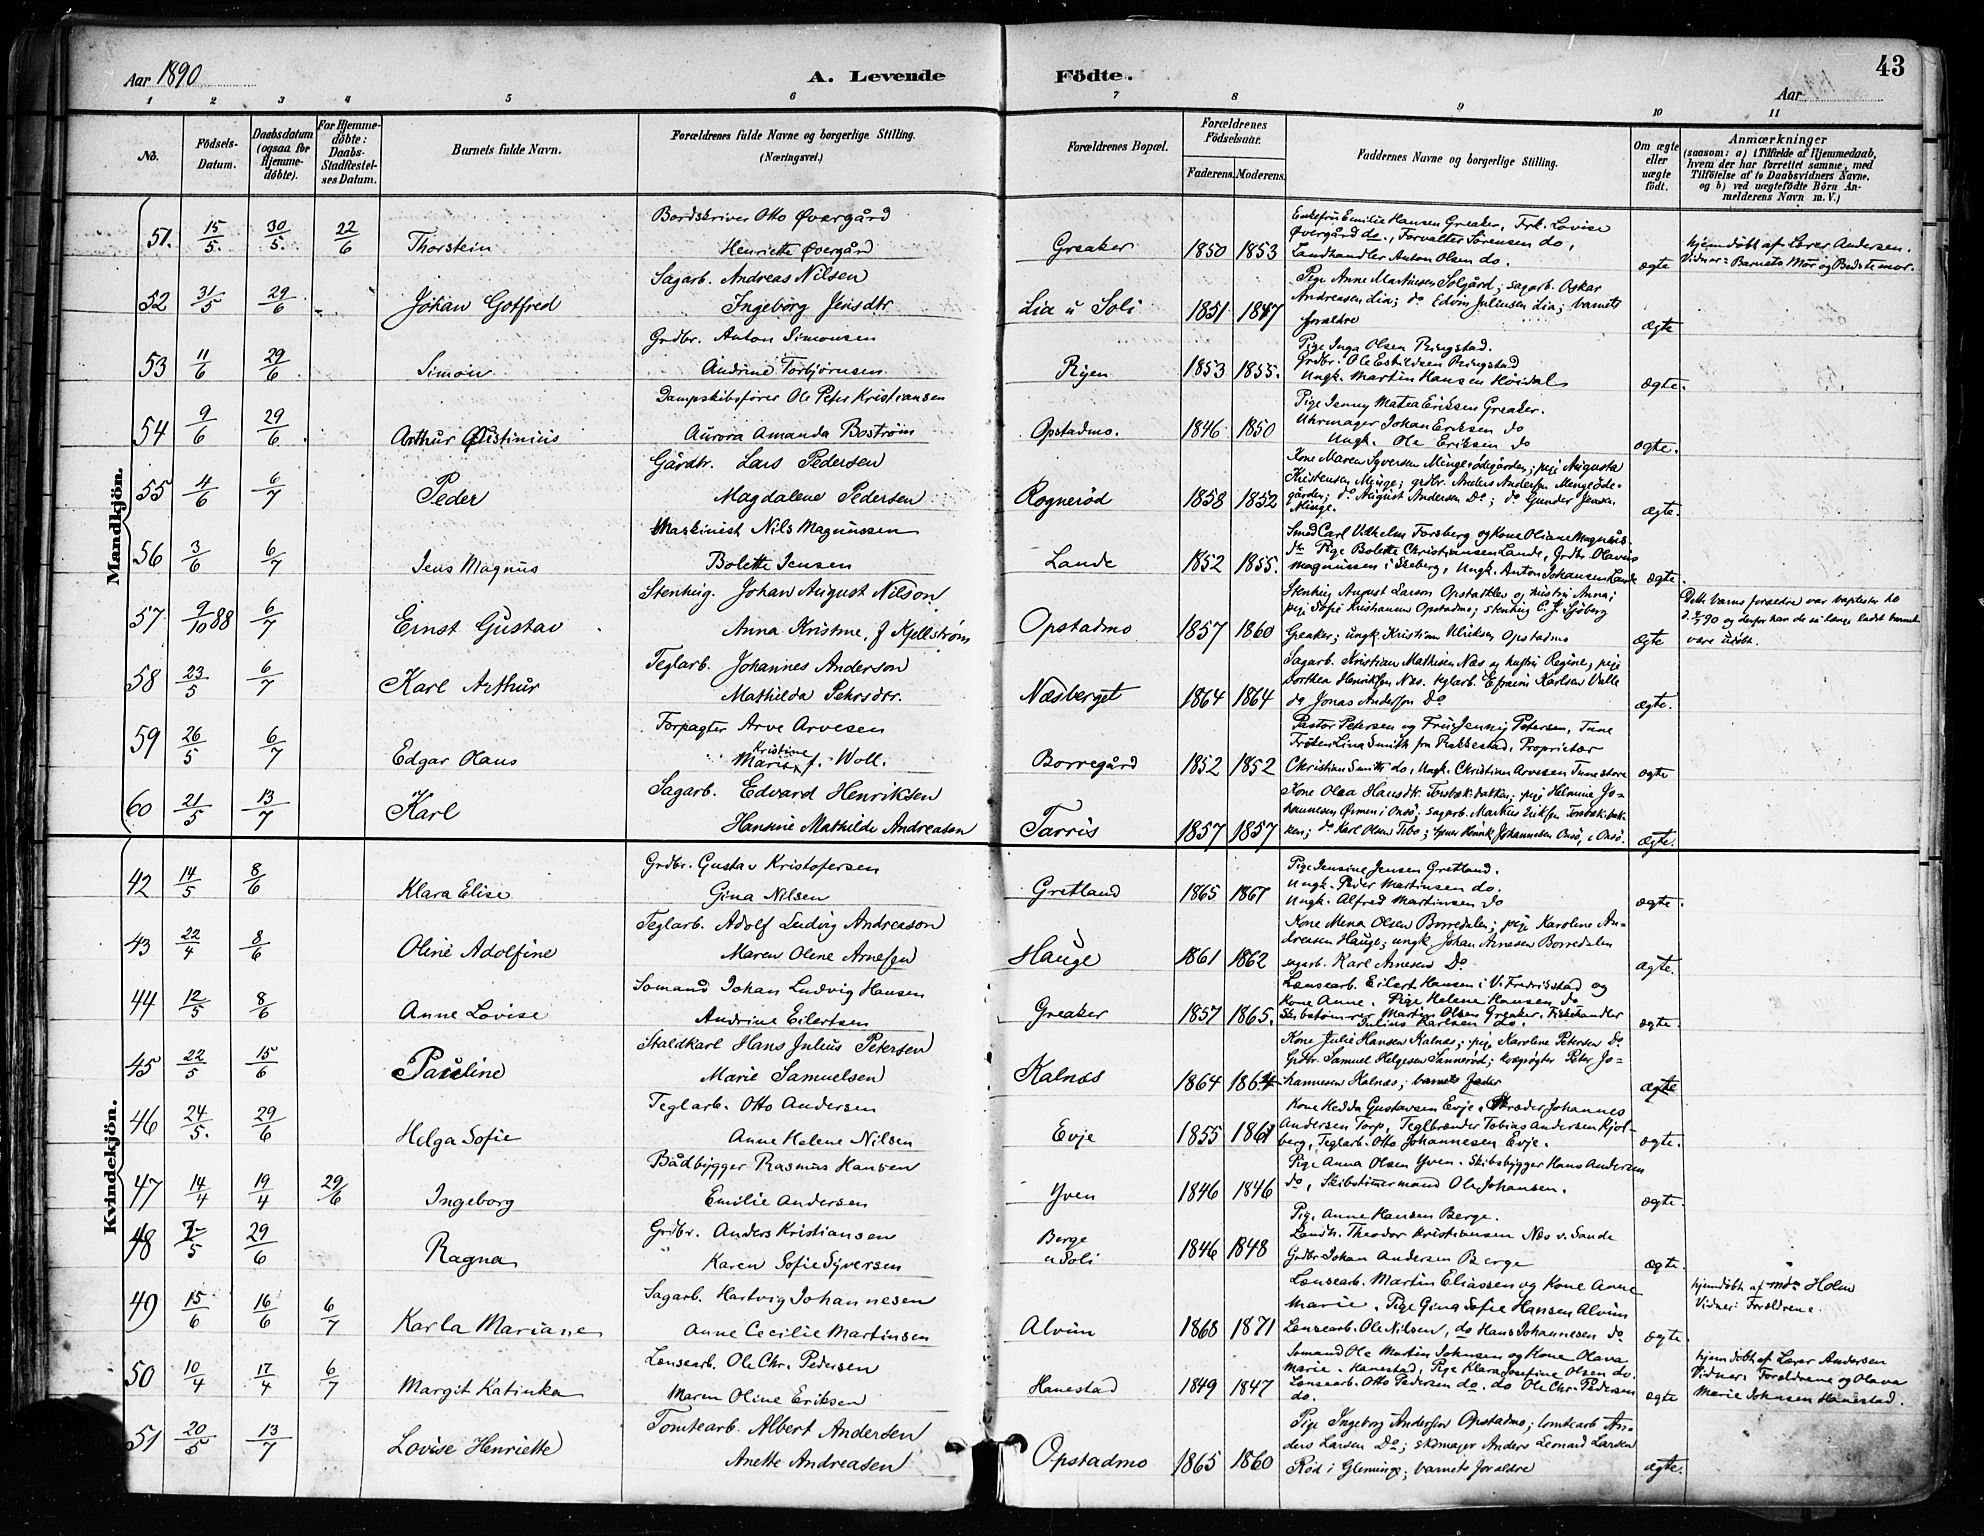 Aar 1890
A. Levende Födte.
43
Aar
1 2 3 4 5 6 7 8 9 10 11
No.
Födsels-Datum.
Daabsdatum (ogsaa for Hjemme-döbte).
For Hjemme-döbte: Daabs-Stadfestel-ses Datum.
Barnets fulde Navn.
Forældrenes fulde Navne og borgerlige Stilling. (Næringsvei.)
Forældrenes Bopæl.
Forældrenes Födselsaar.
Faderens. Moderens.
Faddernes Navne og borgerlige Stilling.
Om ægte eller uægte födt.
Anmærkninger
(saasom: a) i Tilfælde af Hjemmedaab, hvem der har forrettet samme, med Tilföielse af to Daabsvidners Navne, og b) ved uægtefödte Börn An-melderens Navn m. V.)
Mandkjön.
51. 15/5. 30/5. 22/6 Thorstein
Bordskriver Otto Øvergård
Henriette Øvergård
Greaker 1850 1853
Enkefru Emilie Hansen Greaker, Frk. Lovise
Øvergård do., Forvalter Sörensen do,
Landhandler Anton Olsen do.
ægte
hjemdöbt af Lærer Andersen.
Vidner: Barnets Mor og Bedstemor.
52 31/5 29/6 Johan Gotfred
Sagarb. Andreas Nilsen
Ingeborg Jensdtr
Lia u Soli 1851 1847
Pige Anne Martinesen Solgård; sagarb. Oskar
Andreasen Lia; do Edvin Juliussen Lia; barnets
forældre
ægte
53 11/6 29/6 Simon
Grdbr. Anton Simonsen
Andrine Torbjörnsen
Ryen 1853 1855.
Pige Inga Olsen Ringstad.
Grdbr. Ole Eskildsen Ringstad
Ungk. Martin Hansen Hörsdal
ægte.
54 9/6 29/6 Arthur Qvistinius
Dampskibsförer Ole Peter Kristiansen
Aurora Amanda Boström
Opstadmo. 1846 1850
Pige Jenny Matea Eriksen Greaker.
Uhrmager Johan Eriksen do
Ungk. Ole Eriksen do
ægte.
55 4/6 6/7 Peder
Gårdbr. Lars Pedersen
Magdalene Pedersen
Rognerød 1858 1852
Kone Maren Syversen Mingeødegården; pige Augusta
Kristensen Minge; grdbr. Anders Andersen Minge Øde-
gården; do August Andersen Do; do Gunder Jensen
Minge.
ægte.
56 3/6 6/7 Jens Magnus
Maskinist Nils Magnussen
Bolette Jensen
Lande 1852 1855.
Smed Carl Vilhelm Forsberg og Kone Oliane Magnus-
do Pige Bolette Christiansen Lande, Grdbr Olavus
Magnussen i Skeberg, Ungk. Anton Johansen Lande
ægte.
57 9/10 88 6/7 Ernst Gustav
Stenhug. Johan August Nilson
Anna Kristine, f Kjellström
Opstadmo 1857 1860
Stenhug August Larson Opstadtlen og hustru Anna;
pige Sofie Kristiansen Opstadmo; stenhug C. J. Sjöberg
Greaker; ungk. Kristian Ulriksen Opstadmo
ægte
Dette barns forældre var baptister to
90 og derfor har de så længe ladet barnet
være udöbt.
58 23/5 6/7 Karl Arthur
Teglarb. Johannes Anderson
Mathilda Pehrsdtr.
Næsberget 1864 1864
Sagarb. Kristian Mathisen Næs og hustru Regine; pige
Dorthea Henriksen Næs. teglarb. Efraim Karlsen Valle
do Jonas Andersen Do
ægte.
59 26/5 6/7 Edgar Olaus
Forpagter Arve Arvesen
Marie Kristine f. Woll.
Borregård 1852 1852
Pastor Petersen og Fru Jenny Petersen, Tune
Fröken Lina Smith fra Rakkestad, Proprietær
Christian Smith do, Ungk. Christian Arvesen Tune store
ægte
60 21/5 13/7 Karl
Sagarb. Edvard Henriksen
Hansine Mathilde Andreasen
Tarris 1857 1857
Kone Olea Hansdtr. Torsbækbakken; pige Hermine Jo-
hannesen Ørmen i Onsö; sagarb. Markus Eriksen Torsbækbak-
ken; do Karl Olsen Tebo; Henrik Johannesen Onsö, i Onsö.
ægte.
Kvindekjön.
42 14/5 8/6 Klara Elise
Grdbr. Gustav Kristofersen
Gina Nilsen
Gretland 1865 1867
Pige Jensine Jensen Gretland.
Ungk. Peder Martinsen do.
Ungk. Alfred Martinsen do
ægte.
43 22/4 8/6 Oline Adolfine
Teglarb. Adolf Ludvig Andreason
Maren Oline Arnesen
Hauge 1861 1862
Kone Mena Olsen Borredalen; pige Karoline An-
dreasen Hauge; ungk. Johan Arnesen Borredalen
sagarb. Karl Arnesen Do
ægte.
44 12/5 8/6 Anne Lovise
Sömand Johan Ludvig Hansen
Andrine Eilertsen
Greaker 1857 1865.
Lænsearb. Eilert Hansen i V. Fredriksstad og
Kone Anne. Pige Helene Hansen do
Skibstömmer Martin Olsen Greaker. Fiskehandler
Julius Karlsen do.
ægte.
45 22/5 15/6 Pauline
Staldkarl Hans Julius Petersen
Marie Samuelsen
Kalnæs 1864 1864
Kone Julie Hansen Kalnæs; pige Karoline Petersen Do
Grdbr. Samuel Helgesen Sannerød; kvægrögter Peter Jo-
hannesen Kalnæs; barnets fader
ægte
46 24/5. 29/6 Helga Sofie
Teglarb. Otto Andersen
Anne Helene Nilsen
Evje 1855 1861
Kone Hedda Gustavsen Evje. Skræder Johannes
Andersen Torp, Teglbrænder Tobias Andersen Kjöl-
berg, Teglarb. Otto Johannesen Evje.
ægte.
47 14/4 19/4 29/6 Ingeborg
Bådbygger Rasmus Hansen
Emilie Andersen
Yven 1846 1846
Pige Anna Olsen Yven. Skibsbygger Hans Andersen
do, Skibstömmermand Ole Johansen.
ægte.
48 7/5 29/6 Ragna
Grdbr. Anders Kristiansen
Karen Sofie Syversen
Berge u Soli 1846 1848
Pige Anne Hansen Berge.
Landh. Theodor Kristiansen Næs v. Sande
Grdbr Johan Andersen Berge
ægte.
49 15/6 16/6 6/7 Karla Mariane
Sagarb. Hartvig Johannesen
Anne Cecilie Martinsen
Alvim 1868 1871
Lænsearb. Martin Eliassen og Kone Anne
Marie. Pige Gina Sofie Hansen Alvim
Lænsearb. Ole Nilsen, do Hans Johannesen do.
ægte.
hjemdöbt af mdm Holm
Vidner: Forældrene.
50 10/4 17/4 6/7 Margit Katinka
Lænsearb. Ole Chr. Pedersen
Maren Oline Eriksen
Hanestad 1849 1847
Sömand Ole Martin Johnsen og Kone Olava
Marie. Hanestad, Pige Klara Josefine Olsen do.
Lænsearb. Otto Pedersen do. do Ole Chr. Pedersen
do.
ægte
hjemdöbt af Lærer Andersen
Vidner: Forældrene og Olava
Marie Johnsen Hanestad.
51 20/5 13/7 Lovise Henriette
Tomtearb. Albert Andersen
Anette Andreasen
Opstadmo 1865 1860
Pige Ingeborg Andersen Opstadmo; tomtearb An-
ders Larsen Do; skomager Anders Leonard Larsen
Röd i Glemminge; barnets forældre
ægte.